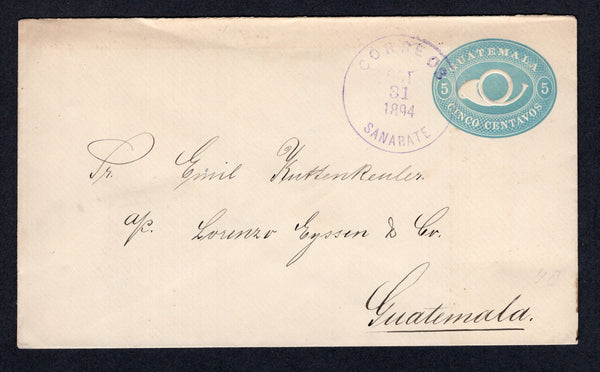 CORREOS
OCT
31
1894
SANARATE
GUATEMALA
5 5
CINCO CENTAVOS
Sr. Emil Kuttenkeuler.
ap. Lorenzo Eyssen & Co.
Guatemala.